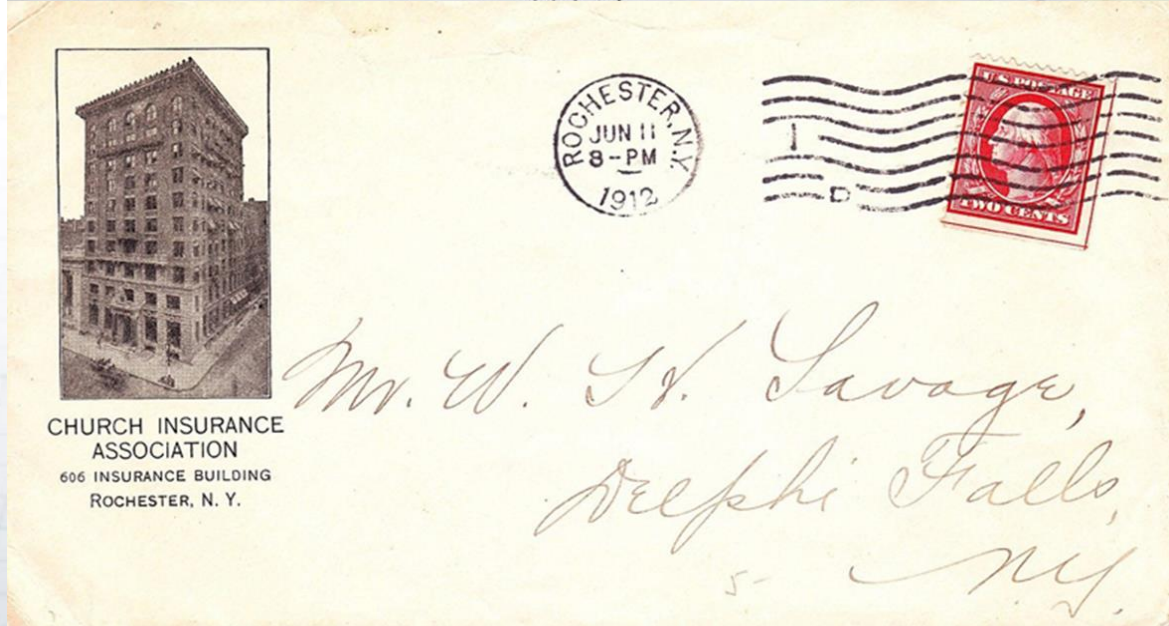 CHURCH INSURANCE
ASSOCIATION
606 INSURANCE BUILDING
ROCHESTER, N. Y.
ROCHESTER, N.Y.
JUN 11
8-PM
1912
1
D
U.S. POSTAGE
TWO CENTS
Mr. W. H. Savage,
Delphi Falls,
N.Y.
5